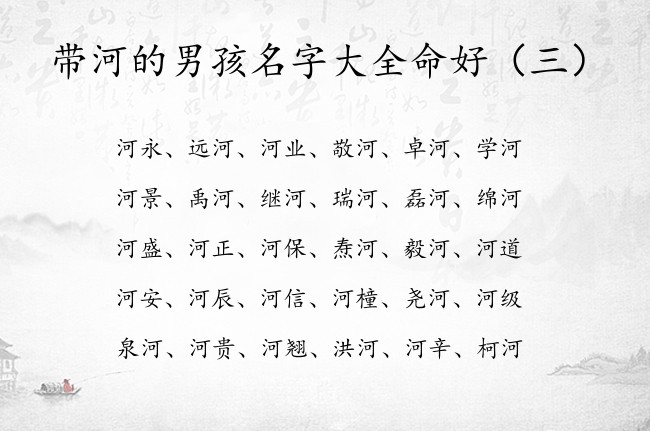 带河的男孩名字大全命好（三）
河永、远河、河业、敬河、卓河、学河
河景、禹河、继河、瑞河、磊河、绵河
河盛、河正、河保、焘河、毅河、河道
河安、河辰、河信、河橦、尧河、河级
泉河、河贵、河翘、洪河、河辛、柯河